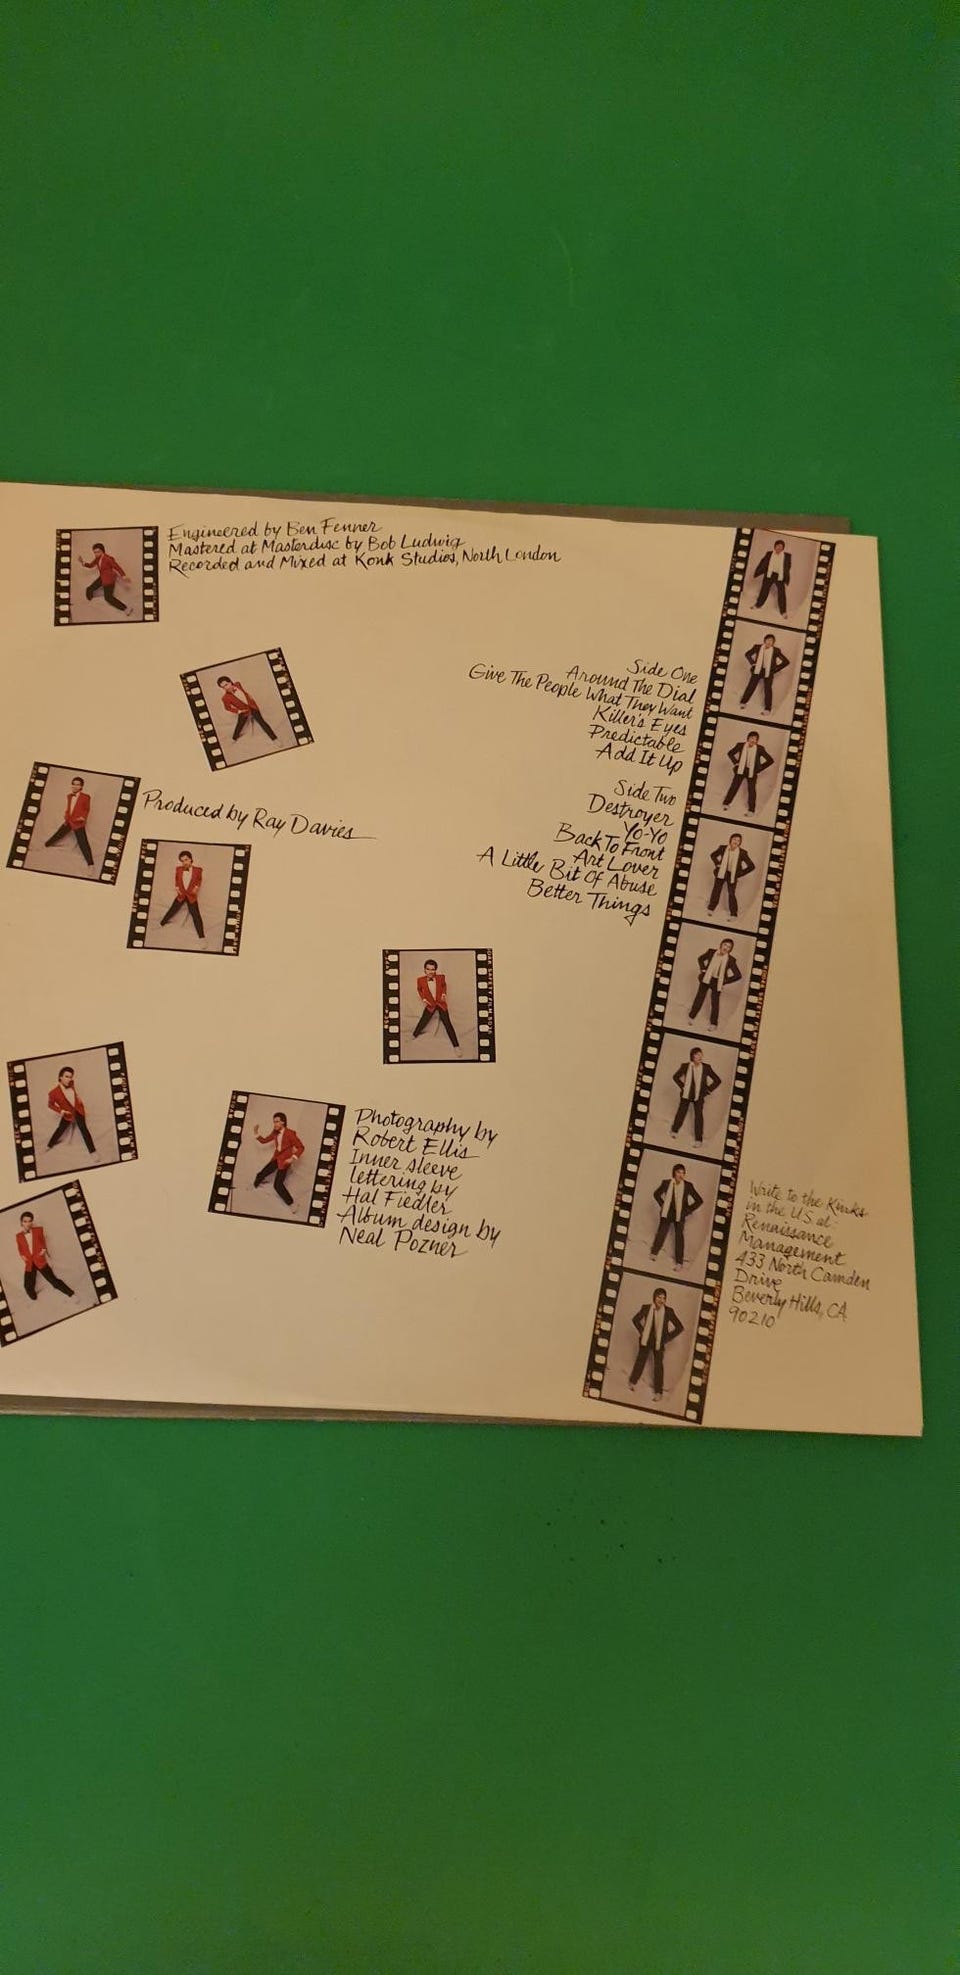 Engineered by Ben Fenner
Mastered at Masterdisc by Bob Ludwig
Recorded and Mixed at Konk Studios, North London
Side One
Around The Dial
Give The People What They Want
Killer's Eyes
Predictable
Add It Up
Side Two
Destroyer
Yo-Yo
Back To Front
Art Lover
A Little Bit Of Abuse
Better Things
Produced by Ray Davies
Photography by
Robert Ellis
Inner sleeve
lettering by
Hal Fiedler
Album design by
Neal Pozner
Write to the Kinks
in the US at:
Renaissance
Management
433 North Camden
Drive
Beverly Hills, CA
90210